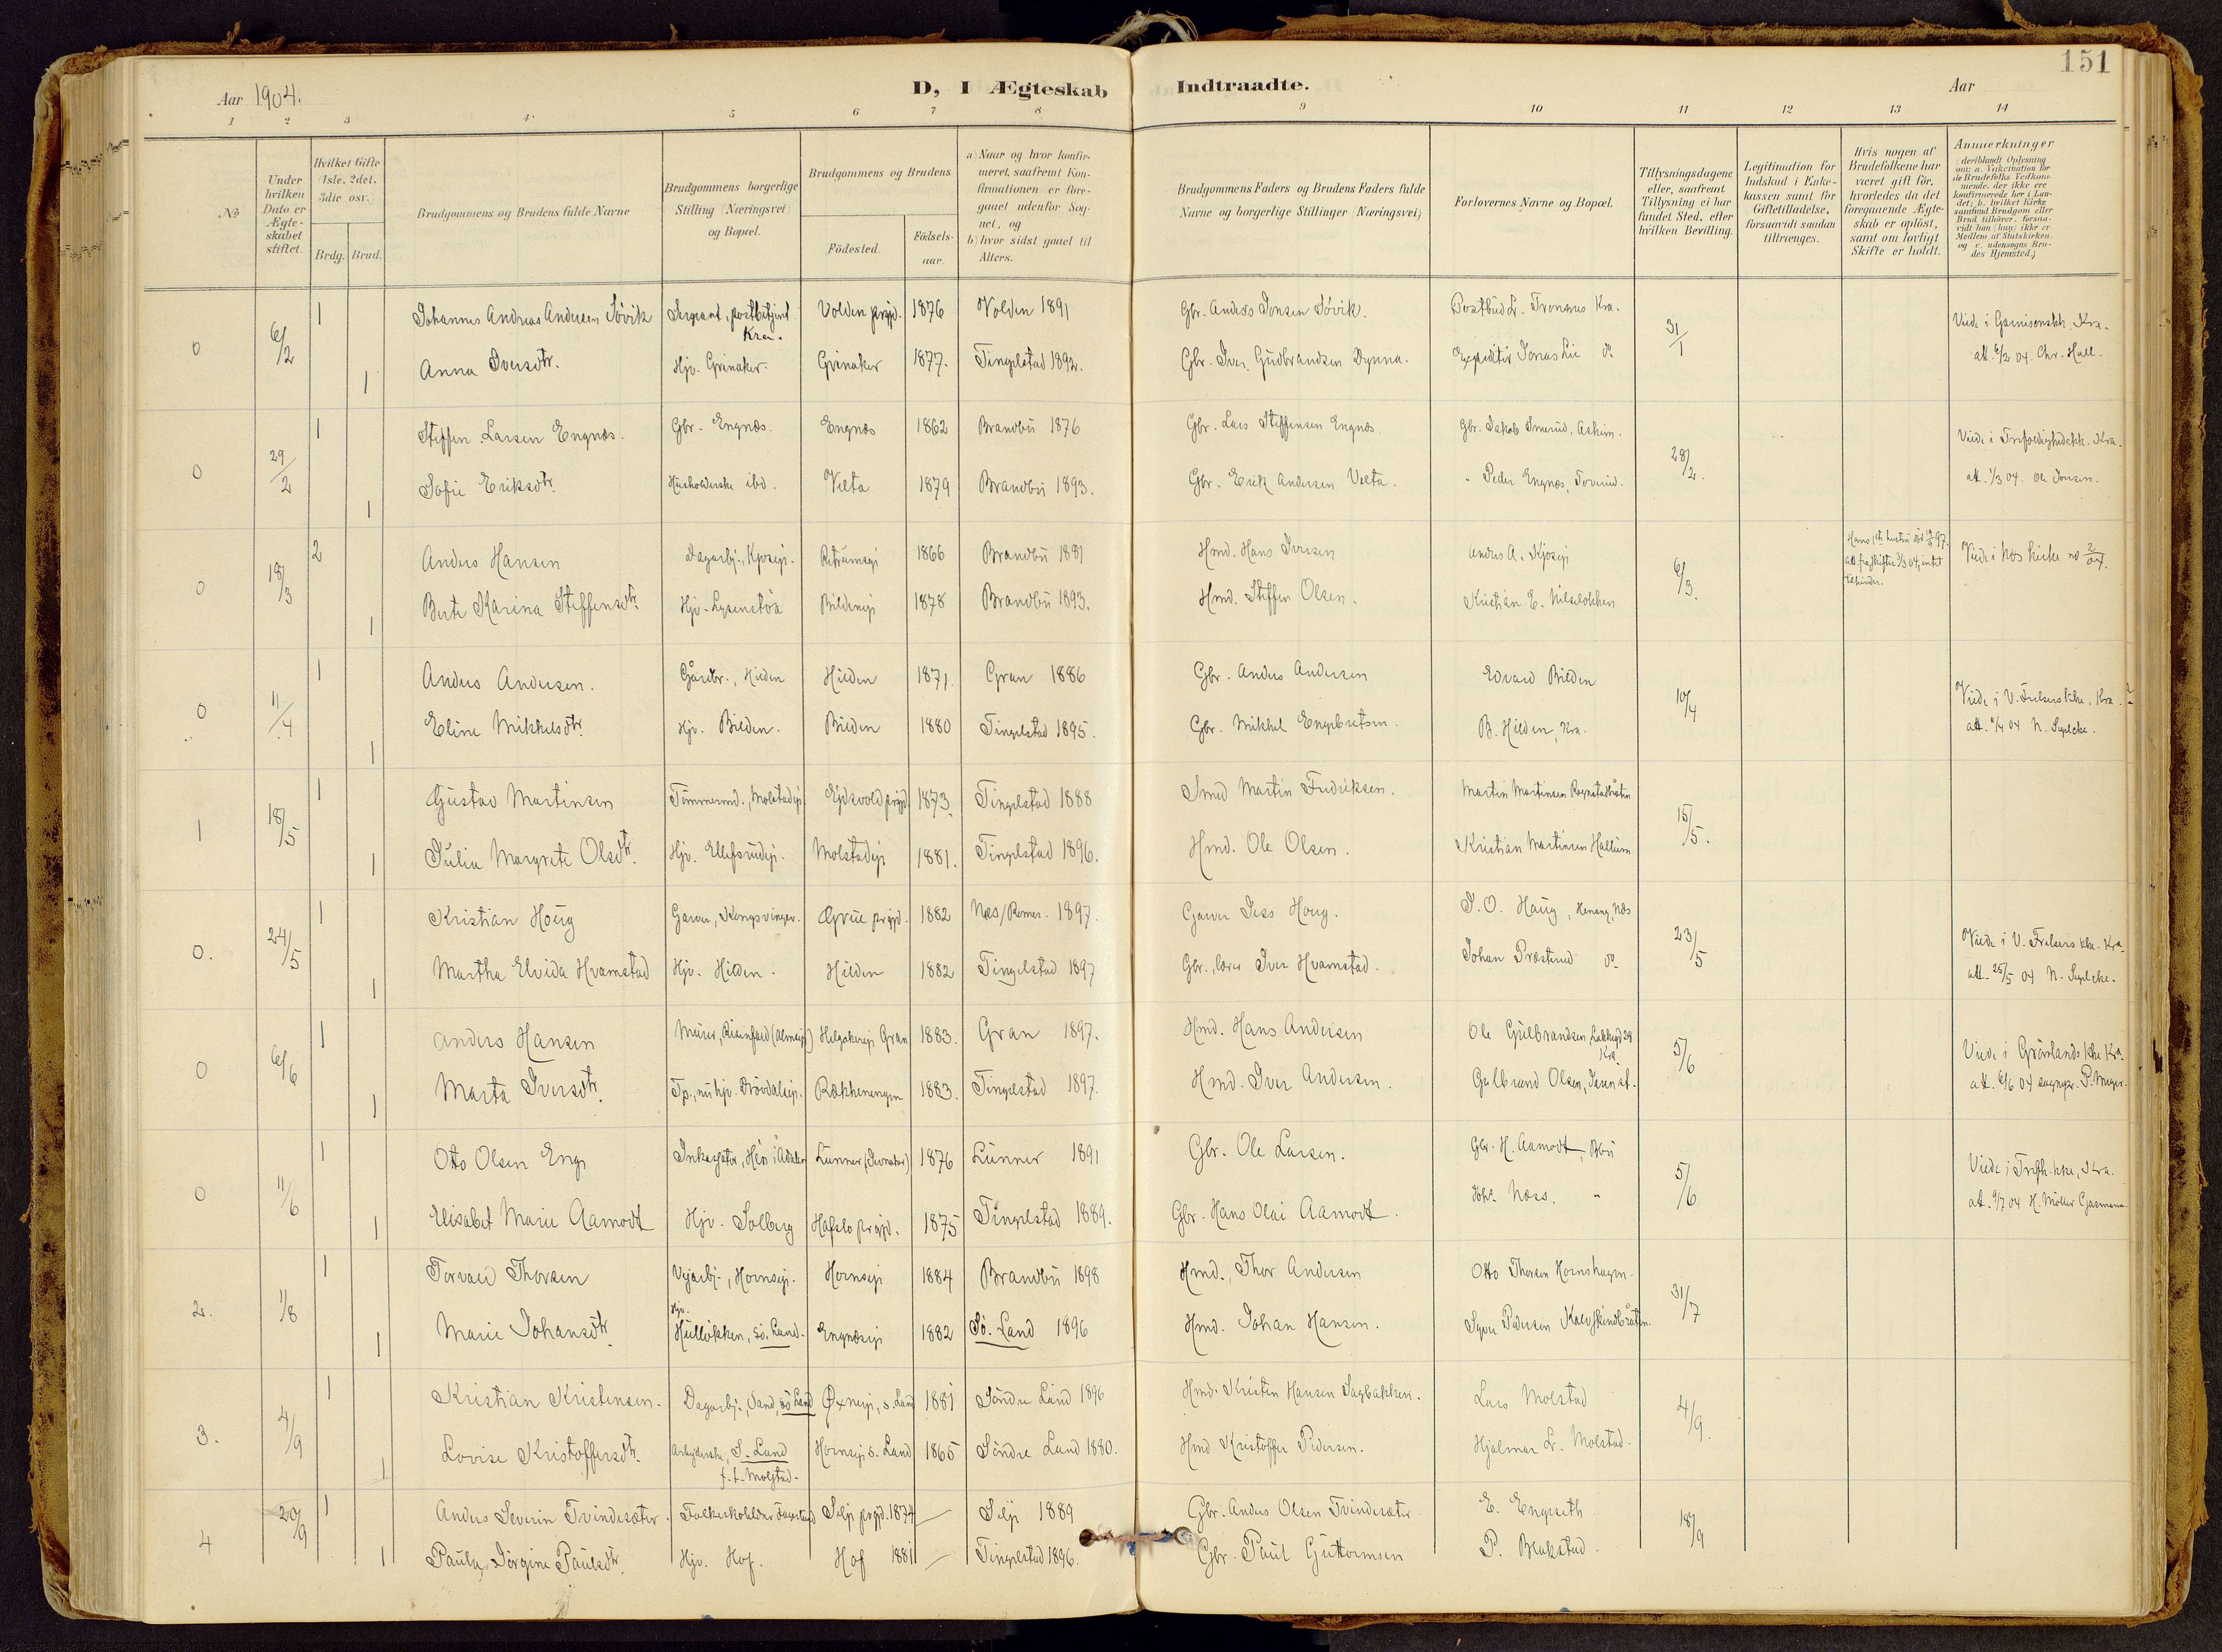 151
Aar 1904.
D, I Ægteskab Indtraadte.
Aar
1 2 3 4 5 6 7 8 9 10 11 12 13 14
No
Under hvilken Dato er Ægteskabet stiftet.
Hvilket Gifte (1ste, 2det, 3die osv.)
Brdg. Brud.
Brudgommens og Brudens fulde Navne
Brudgommens borgerlige Stilling (Næringsvei) og Bopæl.
Brudgommens og Brudens
Födested.
Födselsaar.
a) Naar og hvor konfirmeret, saafremt Konfirmationen er foregaaet udenfor Sognet, og
b) hvor sidst gaaet til Alters.
Brudgommens Faders og Brudens Faders fulde Navne og borgerlige Stillinger (Næringsvei)
Forlovernes Navne og Bopæl.
Tillysningsdagene eller, saafremt Tillysning ei har fundet Sted, efter hvilken Bevilling.
Legitimation for Indskud i Enkekassen samt for Giftetilladelse, forsaavidt saadan tiltrænges.
Hvis nogen af Brudefolkene har været gift før, hvorledes da det foregaaende Ægteskab er opløst, samt om lovligt Skifte er holdt.
Anmærkninger (deriblandt Oplysning om: a. Vakcination for de Brudefolks Vedkommende, der ikke ere konfirmerede her i Landet; b. hvilket Kirkesamfund Brudgom eller Brud tilhører, forsaavidt han (hun) ikke er Medlem af Statskirken, og c. udensogns Brudes Hjemsted.)
0 6/2 1 Johannes Andreas Andersen Søvik Sergeant, postbetjent Kra. Volden prgjd. 1876 Volden 1891 Gbr. Anders Jonsen Søvik. Postbud L. Tronsnes Kra. 31/1 Viede i Garnisonskk. Kra.
1 Anna Iversdtr. Hjv. Grinaker. Grinaker 1877. Tingelstad 1892. Gbr. Iver Gudbrandsen Dynna. Expeditør Jonas Lie do. att. 6/2 04. Chr. Hall.
0 29/2 1 Steffen Larsen Engnæs. Gbr. Engnæs. Engnæs 1862 Brandbu 1876 Gbr. Lars Steffensen Engnæs Gbr. Jakob Smerud, Askim. 28/2. Viede i Trefoldighedskk. Kra.
1 Sofie Eriksdtr. Husholderske ibd. Velta 1879 Brandbu 1893. Gbr. Erik Andersen Velta. " Peder Engnæs, Toverud. att. 1/3 04. Ole Jonsen.
0 18/3 2 Anders Hansen Dagarbj., Kjosejr. 1866 Brandbu 1881 Hmd. Hans Iversen Anders A. Kjosejr 6/3. Hans 1ste hustru død 97. Viede i Næs kirke no 2/04.
1 Berte Karina Steffensdtr. Hjv. Lysenstøa Bildenejr 1878 Brandbu 1893. Hmd. Steffen Olsen. Kristian E. Nilsløkken
0 11/4 1 Anders Andersen. Gårdbr., Hilden Hilden 1871. Gran 1886 Gbr. Anders Andersen Edvard Bilden 10/4 Viede i V. Frelsers kke. Kra.
1 Eline Mikkelsdtr. Hjv. Bilden. Bilden 1880 Tingelstad 1895. Gbr. Mikkel Engebretsen. B. Hilden, Kra. att. 11/4 04 N.
1 18/5 1 Gustav Martinsen Tømmermd., Molstadejr Ejdsvold prgjd 1873. Tingelstad 1888 Smed Martin Fredriksen. Martin Martinsen 15/5.
1 Julia Margrete Olsdtr. Hjv. Ellefsrudejr. Molstadejr 1881. Tingelstad 1896. Hmd. Ole Olsen. Kristian Martinsen Hallum
0. 24/5 1 Kristian Houg Garver, Kongsvinger. Grue prgjd. 1882 Næs/Romer. 1897. Garver Jess Houg. J. O. Haug, Henang, Næs 23/5 Viede i V. Frelsers kke. Kra.
1 Martha Elvida Hvamstad Hjv. Hilden. Hilden 1882 Tingelstad 1897 Gbr., lærer Iver Hvamstad. Johan Præsterud do. att. 25/5 04 N.
0 6/6 1 Anders Hansen Murer, Helgakerejr Gran 1883. Gran 1897. Hmd. Hans Andersen Ole Gulbrandsen, Kra 5/6 Viede i Grønlands kke Kra.
1 Marta Iversdtr. Tp., nu hjv. Røkkenengen 1883. Tingelstad 1897. Hmd. Iver Andersen. Gulbrand Olsen, att. 6/6 04 sogngpr. P. Meyer.
0 11/6 1 Otto Olsen Eng Inkassator, Hen i Ådalen Lunner 1876 Lunner 1891 Gbr. Ole Larsen. Gbr. H. Aamodt, Bbu 5/6 Viede i Trefh. kke, Kra.
1 Elisabet Marie Aamodt Hjv. Solberg Hafslo prgjd. 1875 Tingelstad 1889. Gbr. Hans Olai Aamodt. Johs. Næss. " att. 9/7 04 H. Møller Gasmann.
2. 1/8 1 Torvald Thorsen Vejarbj., Hornsejr. Hornsejr 1884 Brandbu 1898 Hmd. Thor Andersen Otto Thorsen Hornshagen. 31/7
1 Marie Johansdtr. Hjv. Hulløkken, Sö. Land. Engnæsejr 1882 Sö. Land 1896 Hmd. Johan Hansen. Syver Pedersen Kalvskindbråten.
3. 4/9 1 Kristian Kristensen. Dagarbj., Sand, Sö Land Øxnejr, s. Land 1881 Søndre Land 1896 Hmd. Kristen Hansen Sagbakken. Lars Molstad 4/9.
1 Lovise Kristoffersdtr. Arbejderske, S. Land f. t. Molstad. Hornsejr S. Land 1865 Søndre Land 1880. Hmd Kristoffer Pedersen. Hjalmar L. Molstad.
4 20/9 1 Anders Severin Tvindesæter. Folkeskolelærer Selje prgjd. 1874 — Selje 1889 Gbr. Anders Olsen Tvindesæter E. Engeseth 18/9
1 Paula Jørgine Paulsdtr. Hjv. Hof. Hof 1881 — Tingelstad 1896. Gbr. Paul Guttormsen P. Blakstad.